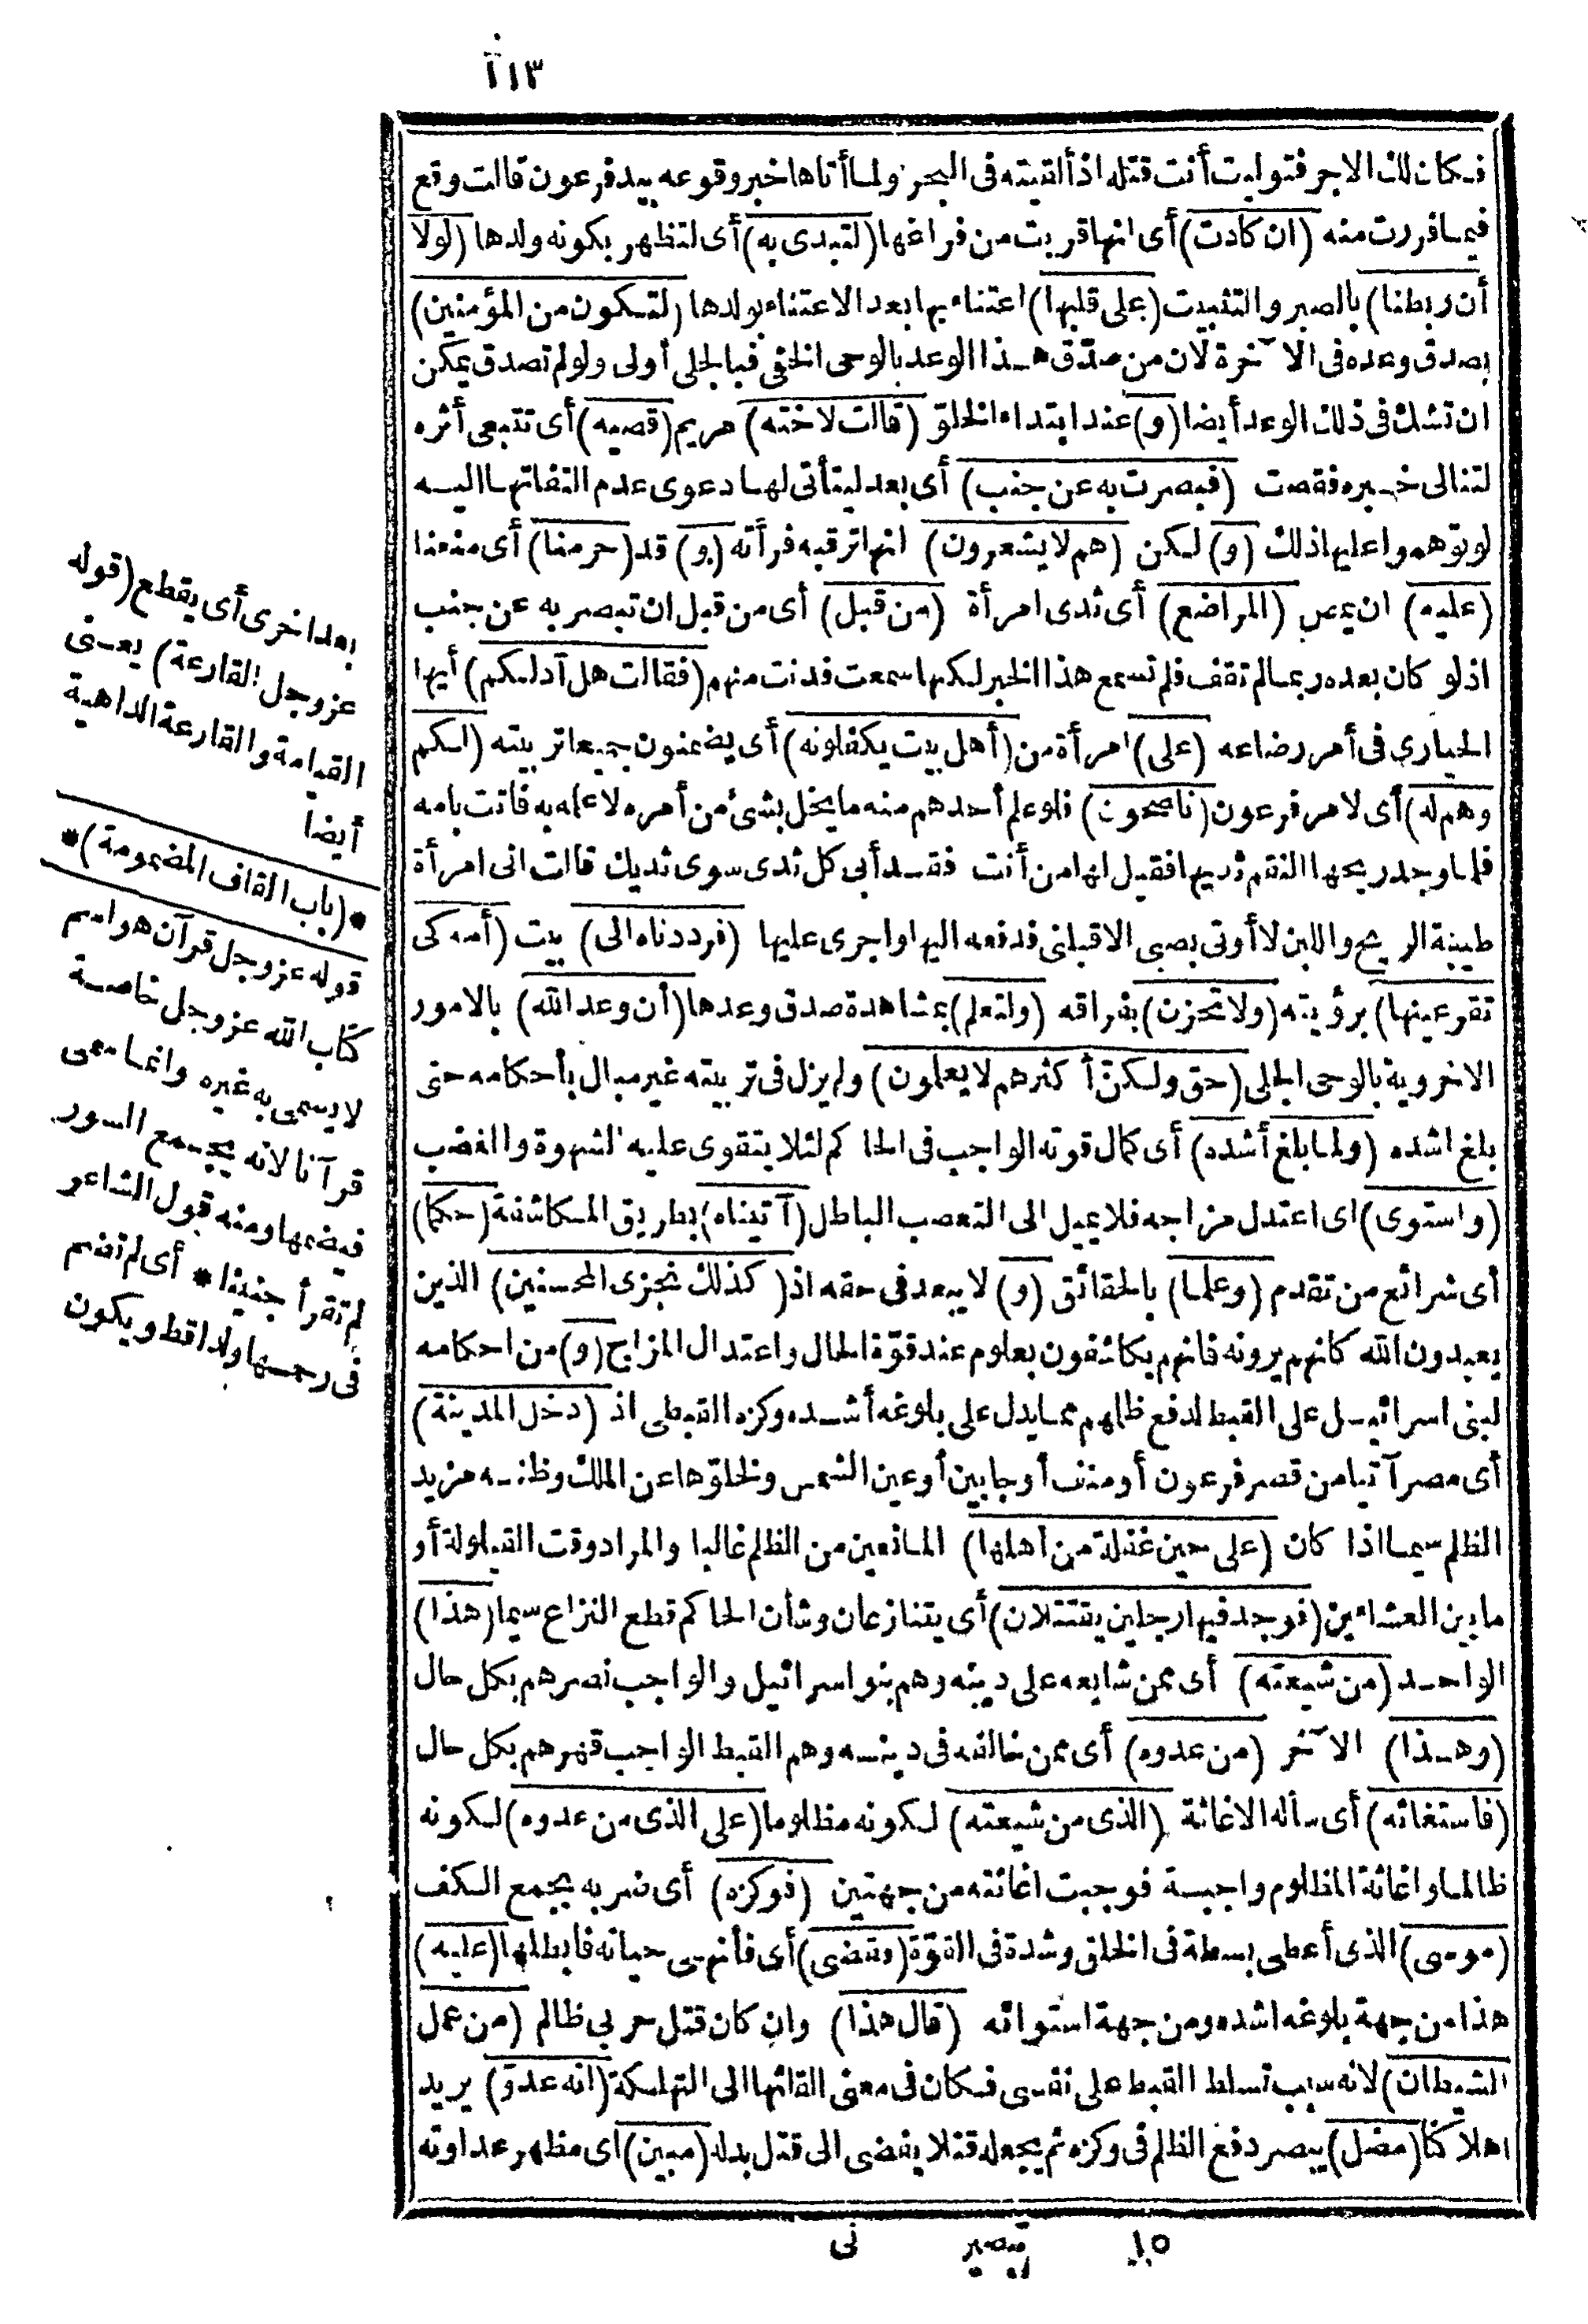 ١١٣
فكان لك الاجر فتوليت أنت قتله اذ ألقيته فى البحر ولما أتاها خبر وقوعه بيد فرعون قالت وقع
فيما فررت منه (ان كادت) أى انها قربت من فراغها (لتبدى به) أى لتظهر بكونه ولدها (لولا
أن ربطنا) بالصبر والتثبيت (على قلبها) اعتناء بها بعد الاعتناء بولدها (لتكون من المؤمنين)
بصدق وعده فى الآخرة لان من صدّق هذا الوعد بالوحى الخفى فبالجلى أولى ولو لم تصدق يمكن
ان تشك فى ذلك الوعد أيضا (و) عند ابتداء الخلق (قالت لاخته) مريم (قصيه) أى تتبعى أثره
لتنالى خبره فقصت (فبصرت به عن جنب) أى بعد ليتأتى لها دعوى عدم التفاتها اليه
لو توهموا عليها ذلك (و) لكن (هم لا يشعرون) انها ترقبه فرأته (و) قد (حرمنا) أى منعنا
(عليه) ان يمص (المراضع) أى ثدى امرأة (من قبل) أى من قبل ان تبصر به عن جنب
اذ لو كان بعده ربما لم تقف فلم تسمع هذا الخبر لكنها سمعت فدنت منهم (فقالت هل أدلكم) أيها
الحيارى فى أمر رضاعه (على) امرأة من (أهل بيت يكفلونه) أى يضمنون جميعا تربيته (لكم
وهم له) أى لامر فرعون (ناصحون) فلو علم أحدهم منه ما يخل بشئ من أمره لاعلمه به فاتت بامه
فلما وجد ريحها التقم ثديها فقيل لها من أنت فقد أبى كل ثدى سوى ثديك قالت انى امرأة
طيبة الريح واللبن لا أوتى بصبى الا قبلنى فدفعه اليها واجرى عليها (فرددناه الى) بيت (أمه كى
تقر عينها) برؤيته (ولا تحزن) بفراقه (ولتعلم) بمشاهدة صدق وعدها (أن وعد الله) بالامور
الاخروية بالوحى الجلى (حق ولكنّ أكثرهم لا يعلمون) ولم يزل فى تربيته غير مبال بأحكامه حتى
بلغ اشده (ولما بلغ أشده) أى كمال قوته الواجب فى الحاكم لئلا يتقوى عليه الشهوة والغضب
(واستوى) اى اعتدل مزاجه فلا يميل الى التعصب الباطل (آتيناه) بطريق المكاشفة (حكما)
أى شرائع من تقدم (وعلما) بالحقائق (و) لا يبعد فى حقه اذ (كذلك نجزى المحسنين) الذين
يعبدون الله كانهم يرونه فانهم يكاشفون بعلوم عند قوّة الحال واعتدال المزاج (و) من احكامه
لبنى اسرائيل على القبط لدفع ظلمهم مما يدل على بلوغه أشده وكزه القبطى اذ (دخل المدينة)
أى مصر آتيا من قصر فرعون أو منف أو حابين أو عين الشمس ونخلوّها عن الملك وظنه مزيد
الظلم سيما اذا كان (على حين غفلة من أهلها) المانعين من الظلم غالبا والمراد وقت القيلولة أو
ما بين العشاءين (فوجد فيها رجلين يقتتلان) أى يتنازعان وشأن الحاكم قطع النزاع سيما (هذا)
الواحد (من شيعته) أى ممن شايعه على دينه وهم بنو اسرائيل والواجب نصرهم بكل حال
(وهذا) الآخر (من عدوه) أى ممن خالفه فى دينه وهم القبط الواجب قهرهم بكل حال
(فاستغاثه) أى سأله الاغاثة (الذى من شيعته) لكونه مظلوما (على الذى من عدوه) لكونه
ظالما واغاثة المظلوم واجبة فوجبت اغاثته من جهتين (فوكزه) أى ضربه بجمع الكف
(موسى) الذى أعطى بسطة فى الخلق وشدة فى القوّة (فقضى) أى فأنهى حياته فابطلها (عليه)
هذا من جهة بلوغه اشده ومن جهة استوائه (قال هذا) وان كان قتل حربى ظالم (من عمل
الشيطان) لانه سبب تسلط القبط على نفسى فكان فى معنى القائها الى التهلكة (انه عدوّ) يريد
اهلاكنا (مضل) يبصر دفع الظلم فى وكزه ثم يجعله قتلا يفضى الى قتل بدله (مبين) اى مظهر عداوته
١٥ تبصير نى
بعد اخرى أى يقطع (قوله
عز وجل القارعة) يعنى
القيامة والقارعة الداهية
أيضا
*(باب القاف المضمومة)*
قوله عز وجل قرآن هو اسم
كتاب الله عز وجل خاصة
لا يسمى به غيره وانما سمى
قرآنا لانه يجمع السور
فيضمها ومنه قول الشاعر
لم تقرأ جنينا* أى لم تضم
فى رحمها ولدا قط ويكون